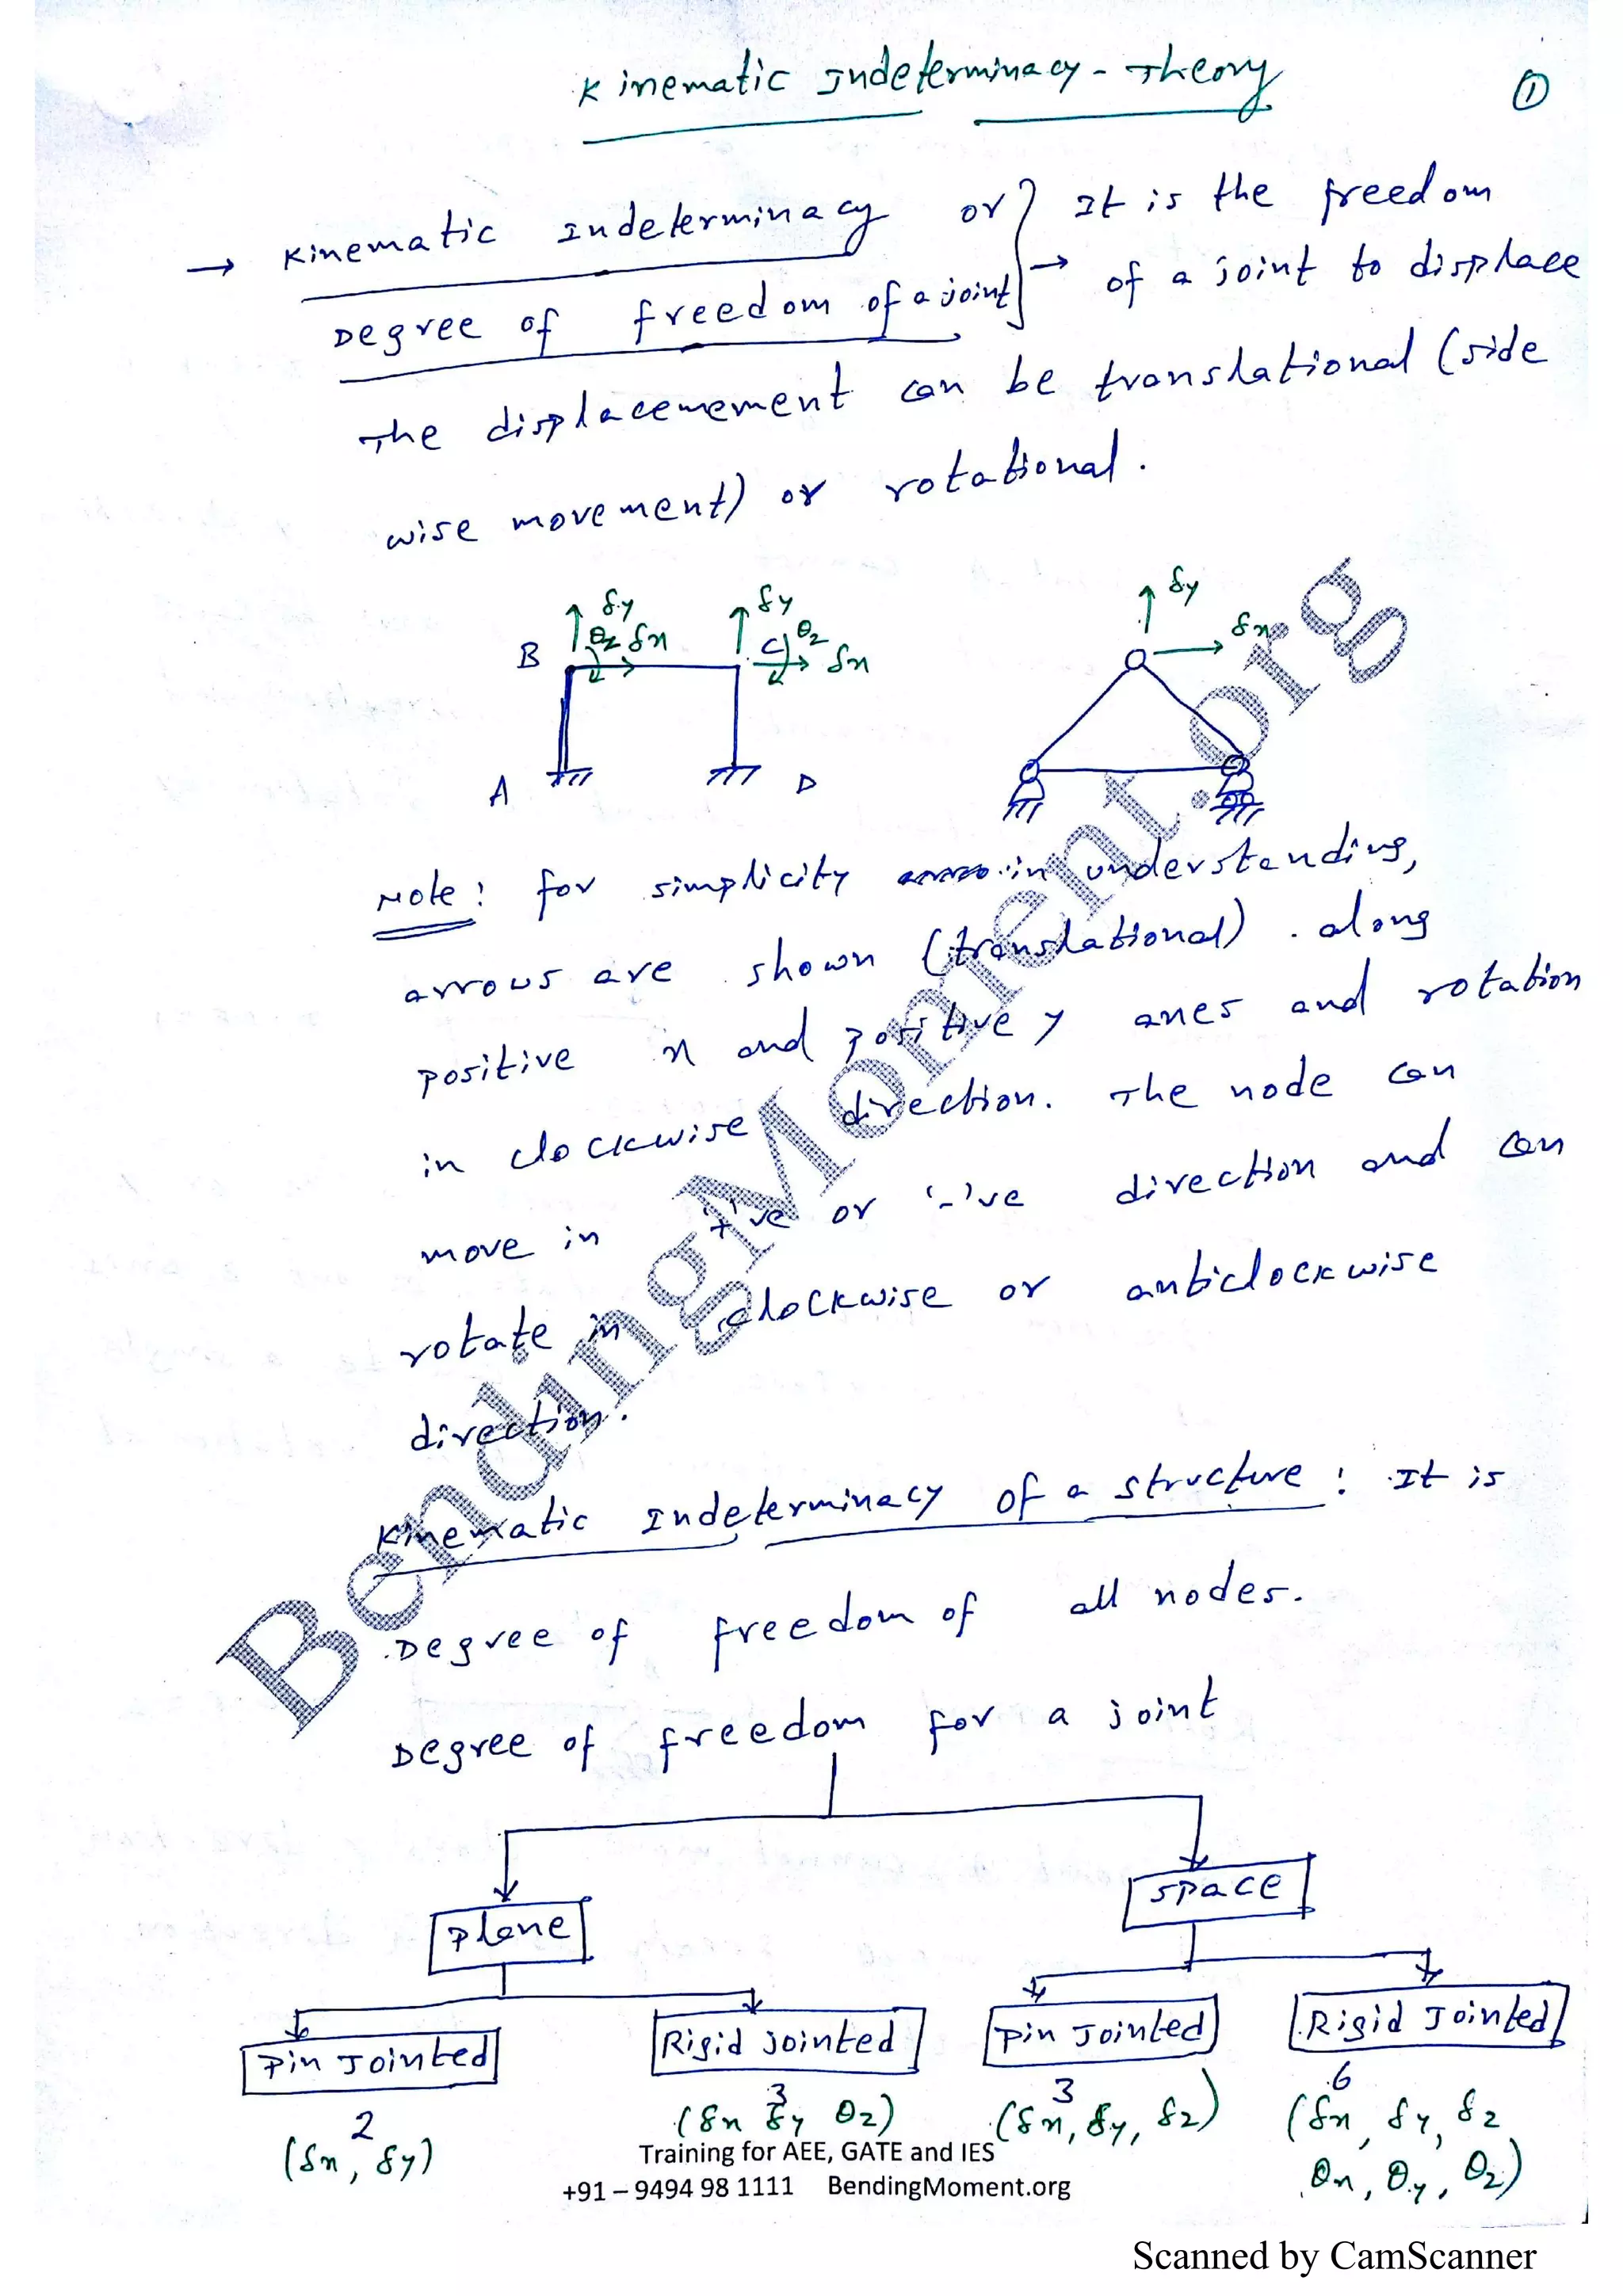 Kinematic Indeterminacy - Theory
1
→ Kinematic Indeterminacy or } It is the freedom
Degree of freedom of a joint } → of a joint to displace
The displacemement can be translational (side
wise movement) or rotational.
δy δy δy
B θz δx C θz δx δx
A D
Note: for simplicity in understanding,
arrows are shown (translational) along
positive x and positive y axes and rotation
in clockwise direction. The node can
move in '+'ve or '-'ve direction and can
rotate in clockwise or anticlockwise
direction.
Kinematic Indeterminacy of a structure: It is
Degree of freedom of all nodes.
Degree of freedom for a joint
Plane Space
Pin Jointed Rigid Jointed Pin Jointed Rigid Jointed
2 3 3 6
(δx, δy) (δx δy θz) (δx, δy, δz) (δx, δy, δz
θx, θy, θz)
Training for AEE, GATE and IES
+91 – 9494 98 1111 BendingMoment.org
BendingMoment.org
Scanned by CamScanner